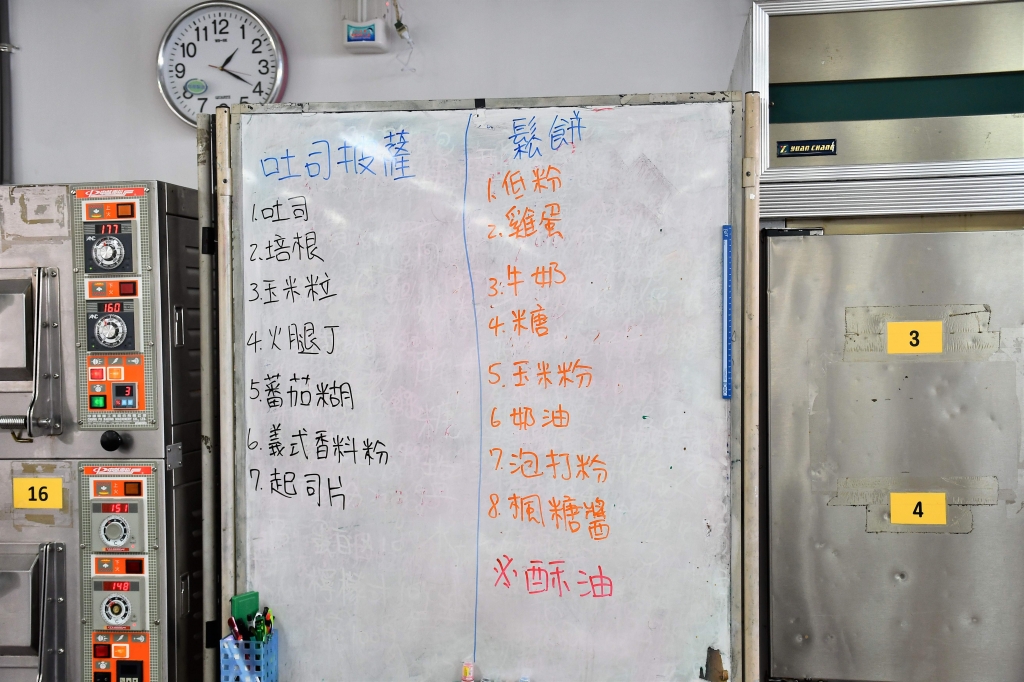 12
1
2
3
4
7
8
9
10
11
吐司披薩
1.吐司
2.培根
3.玉米粒
4.火腿丁
5.蕃茄糊
6.義式香料粉
7.起司片
鬆餅
1.低粉
2.雞蛋
3.牛奶
4.糖
5.玉米粉
6 奶油
7.泡打粉
8.楓糖醬
※酥油
YUAN CHANG
3
4
177
160
3
16
151
148